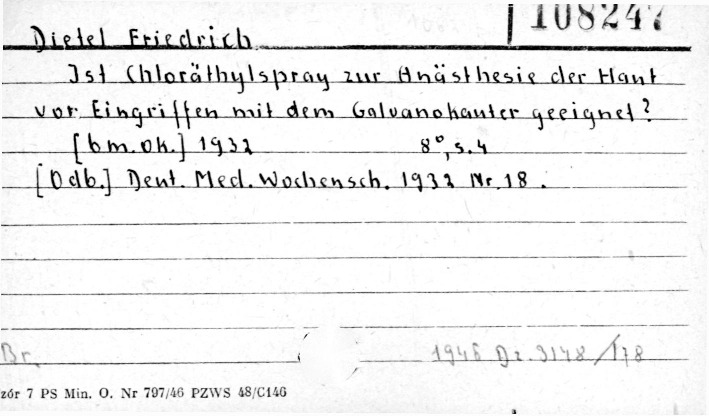 108247
Dietel Friedrich
Ist Chloräthylspray zur Anästhesie der Haut
vor Eingriffen mit dem Galvanokauter geeignet?
[bm.ok.] 1932 8°, s. 4
[Odb.] Deut. Med. Wochensch. 1932 Nr. 18.
Br. 1946 Dz. 3148/178
zór 7 PS Min. O. Nr 797/46 PZWS 48/C146